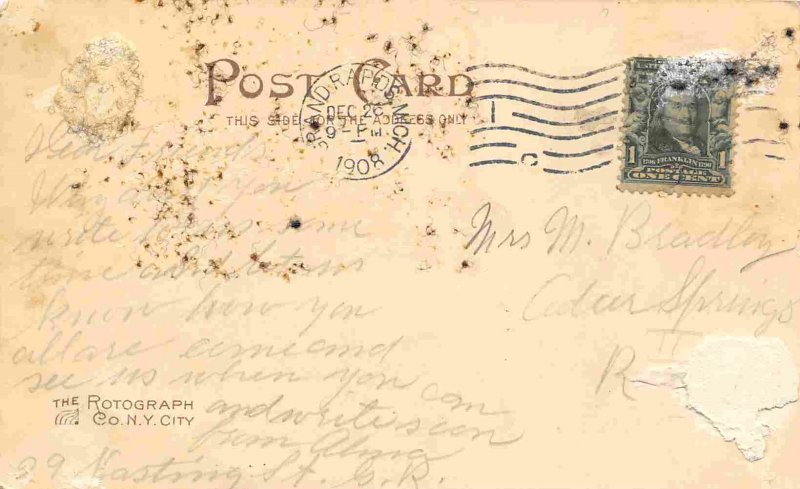 POST CARD
THIS SIDE FOR THE ADDRESS ONLY
GRAND RAPIDS, MICH.
DEC 28
9-PM
1908
1
C
1
1706 FRANKLIN 1790
POSTAGE
ONE CENT
1
Mrs M. Bradley
Cedar Springs
R
Dear Friends
Why dont you
write to us some
time and let us
know how you
all are come and
see us when you can
and write soon
from Alma
29 Hasting St. G.R.
THE ROTOGRAPH
CO. N.Y. CITY